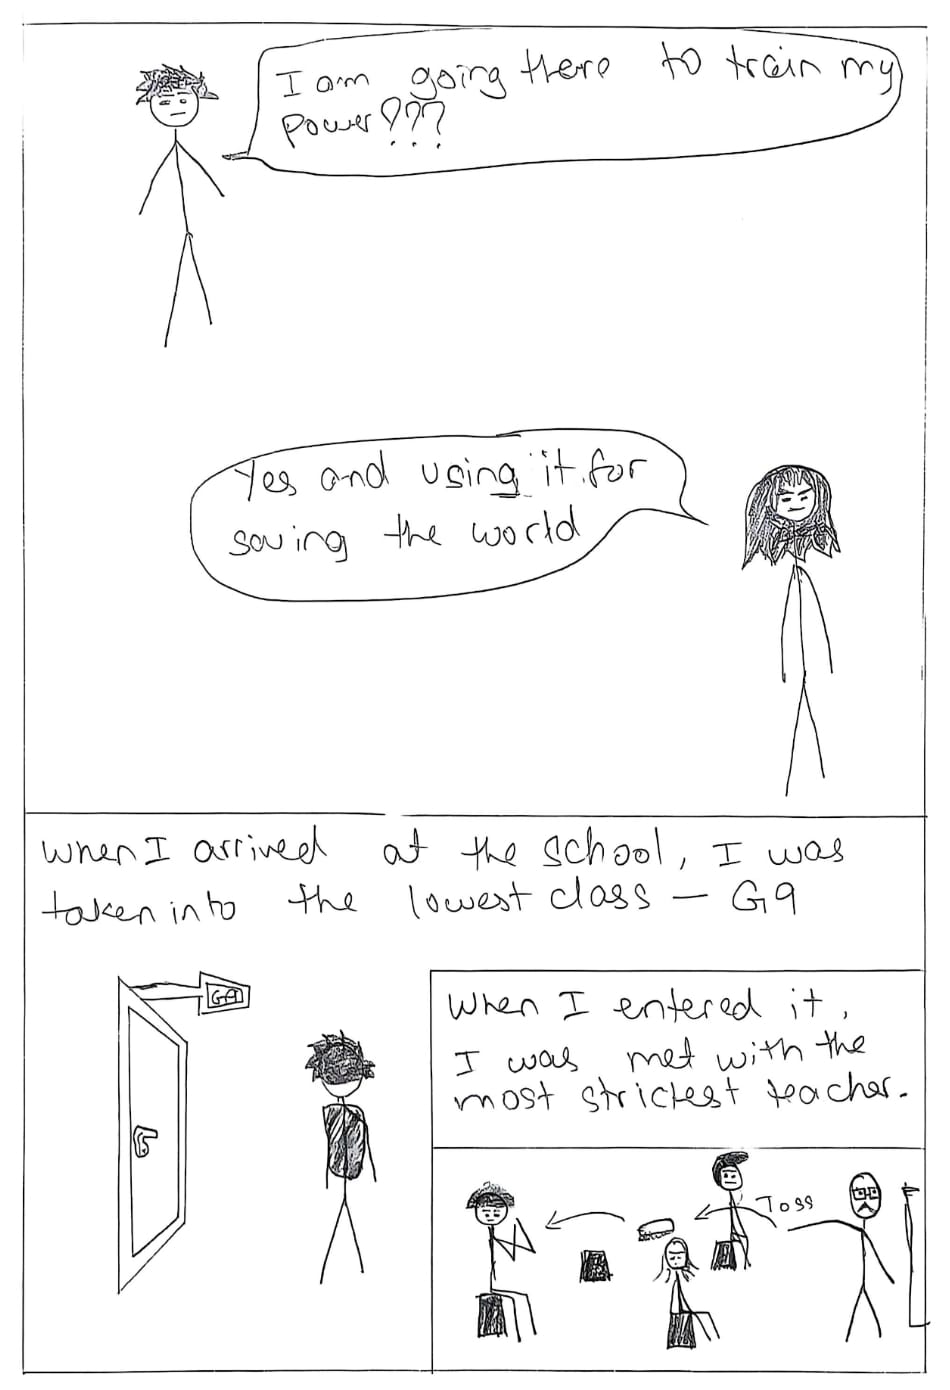 I am going there to train my
power???
Yes and using it for
saving the world
When I arrived at the school, I was
taken into the lowest class – G9
G9
When I entered it,
I was met with the
most strictest teacher.
Toss